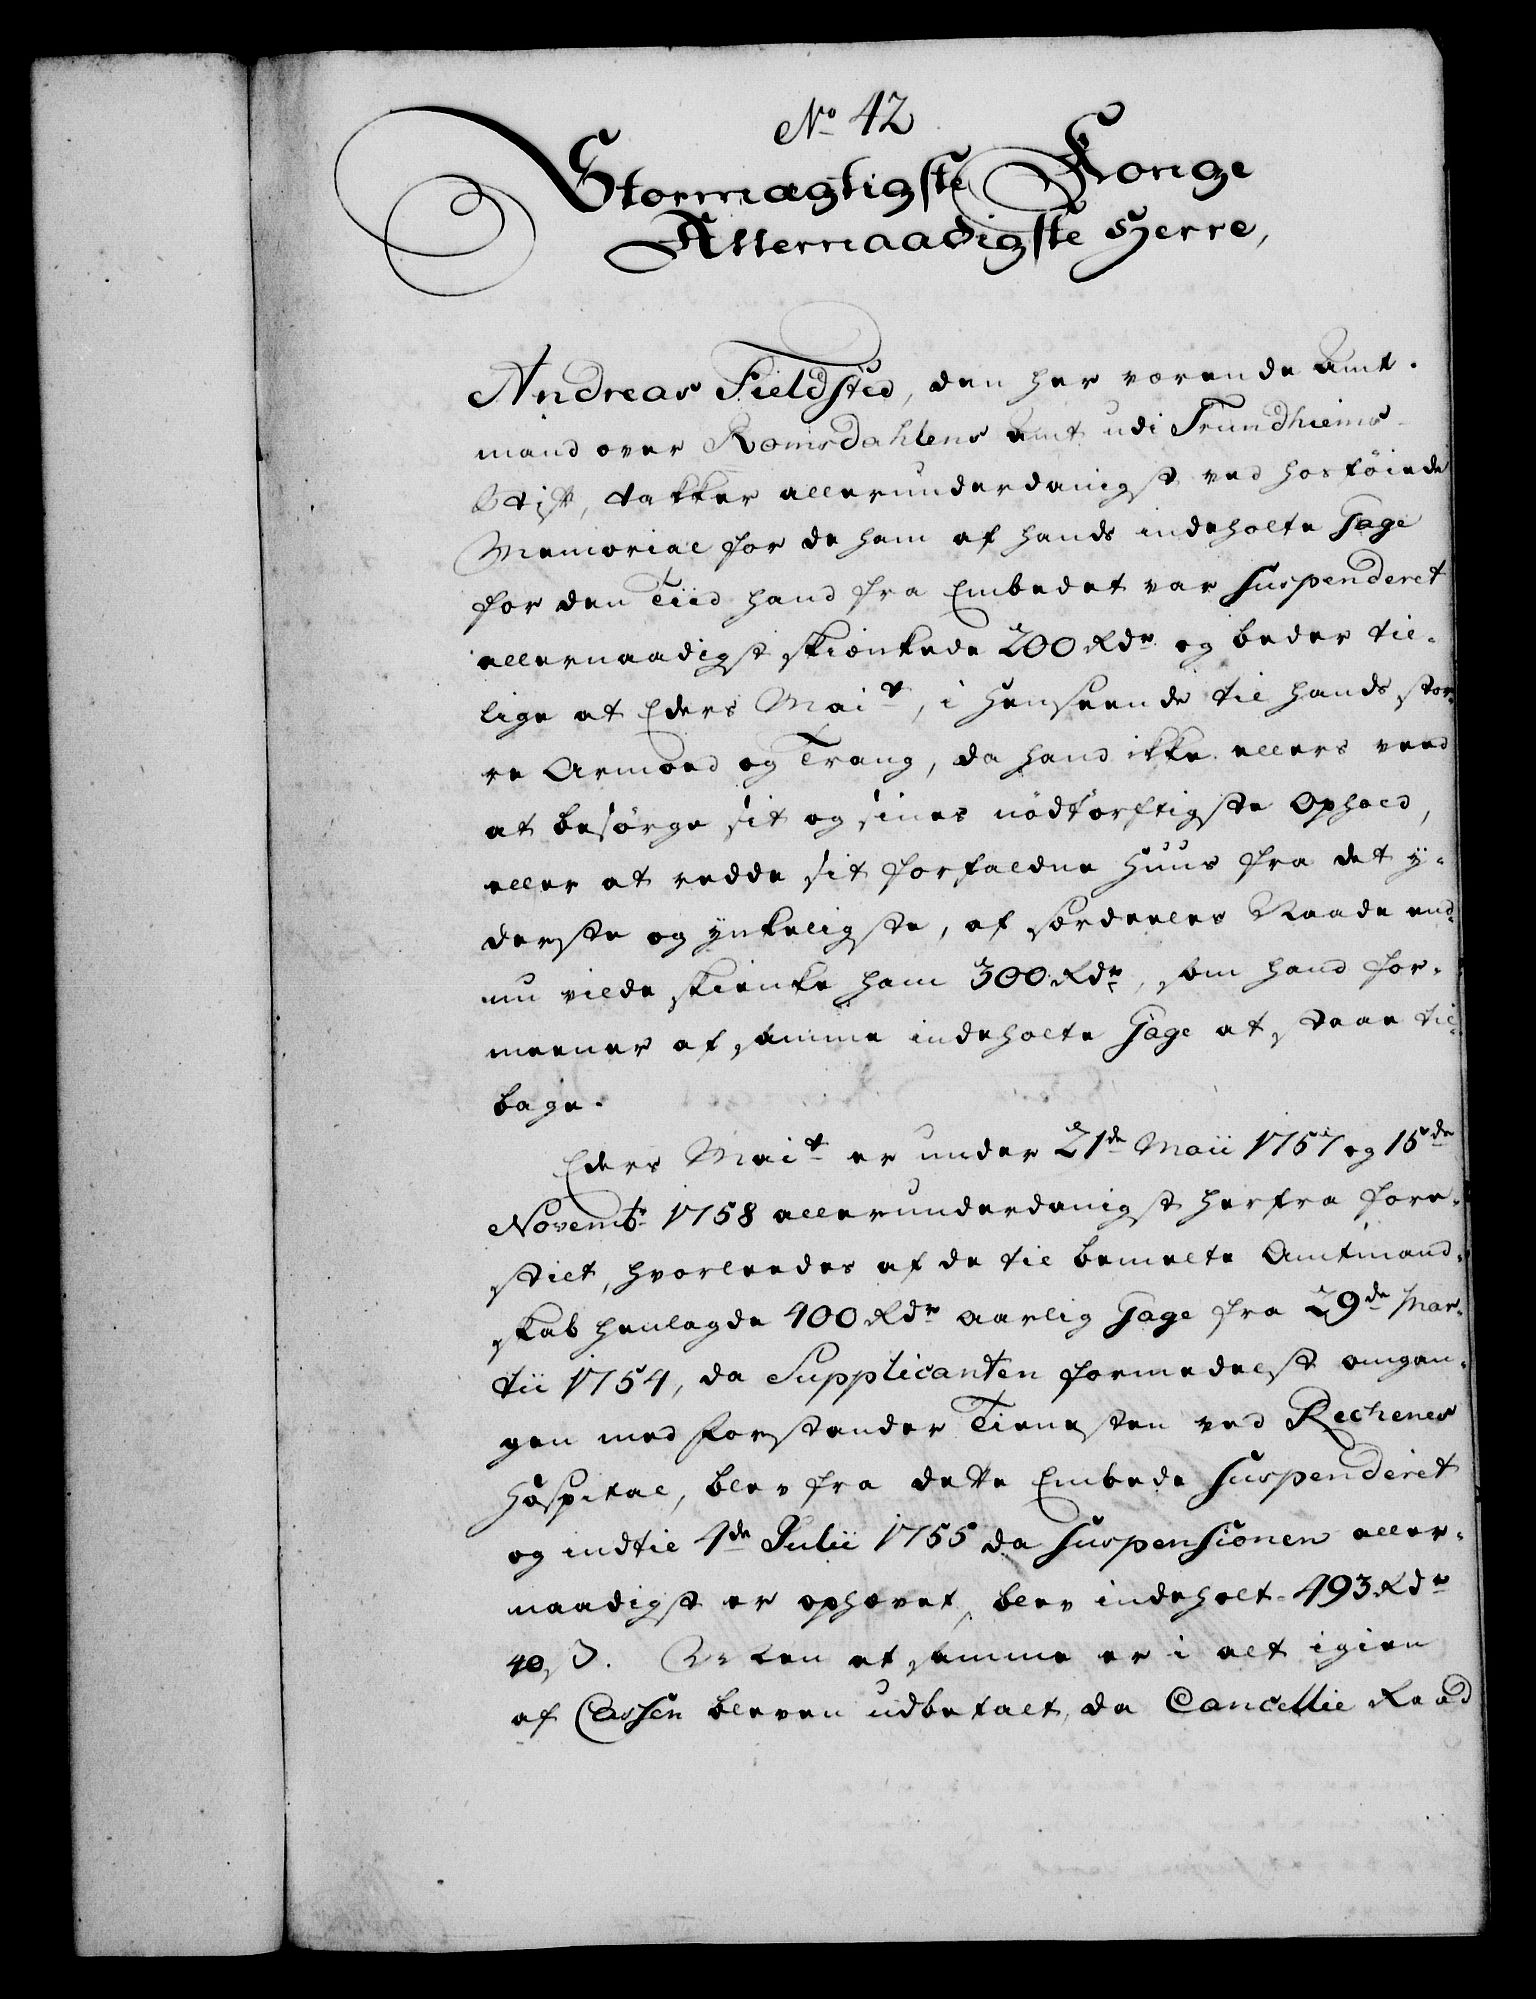 No 42
Stormægtigste Konge
Allernaadigste Herre,
Andreas Fieldsted, den her vorende Amt-
mand over Romsdahlens Amt udi Trundhiems
Stift, takker allerunderdanigst ved hosföiede
Memorial for de ham af hands indeholte Gage
for den Tiid hand fra Embedet var suspenderet
allernaadigst skiænkede 200 Rdr og beder til-
lige at Eders Mait, i Henseende til hands stor
re Armoed og Trang, da hand ikke ellers veed
at besörge sit og sines nödtörftigste Ophold,
eller at redde sit forfaldne Huus fra det y-
derste og ynkeligste, af særdeeles Naade end-
nu vilde skienke ham 300 Rdr, som hand for-
meener af samme indeholte Gage at staae til-
bage.
Eders Mait er under 21de Maii 1757 og 15de
Novembr 1758 allerunderdanigst herfra fore-
stilt, hvorleedes af de til bemelte Amtmand-
skab henlagde 400 Rdr aarlig Gage fra 29de Mar-
tii 1754, da Supplicanten formedelst omgan-
gen med Forstander Tienesten ved Rechenes
Hospital, blev fra dette Embede suspenderet
og indtil 4de Julii 1755 da suspensionen aller-
naadigst er ophævet, blev indeholt 493 Rdr
40 ß. At af samme er i alt igien
af Cassen bleven udbetalt, da Cancellie Raad